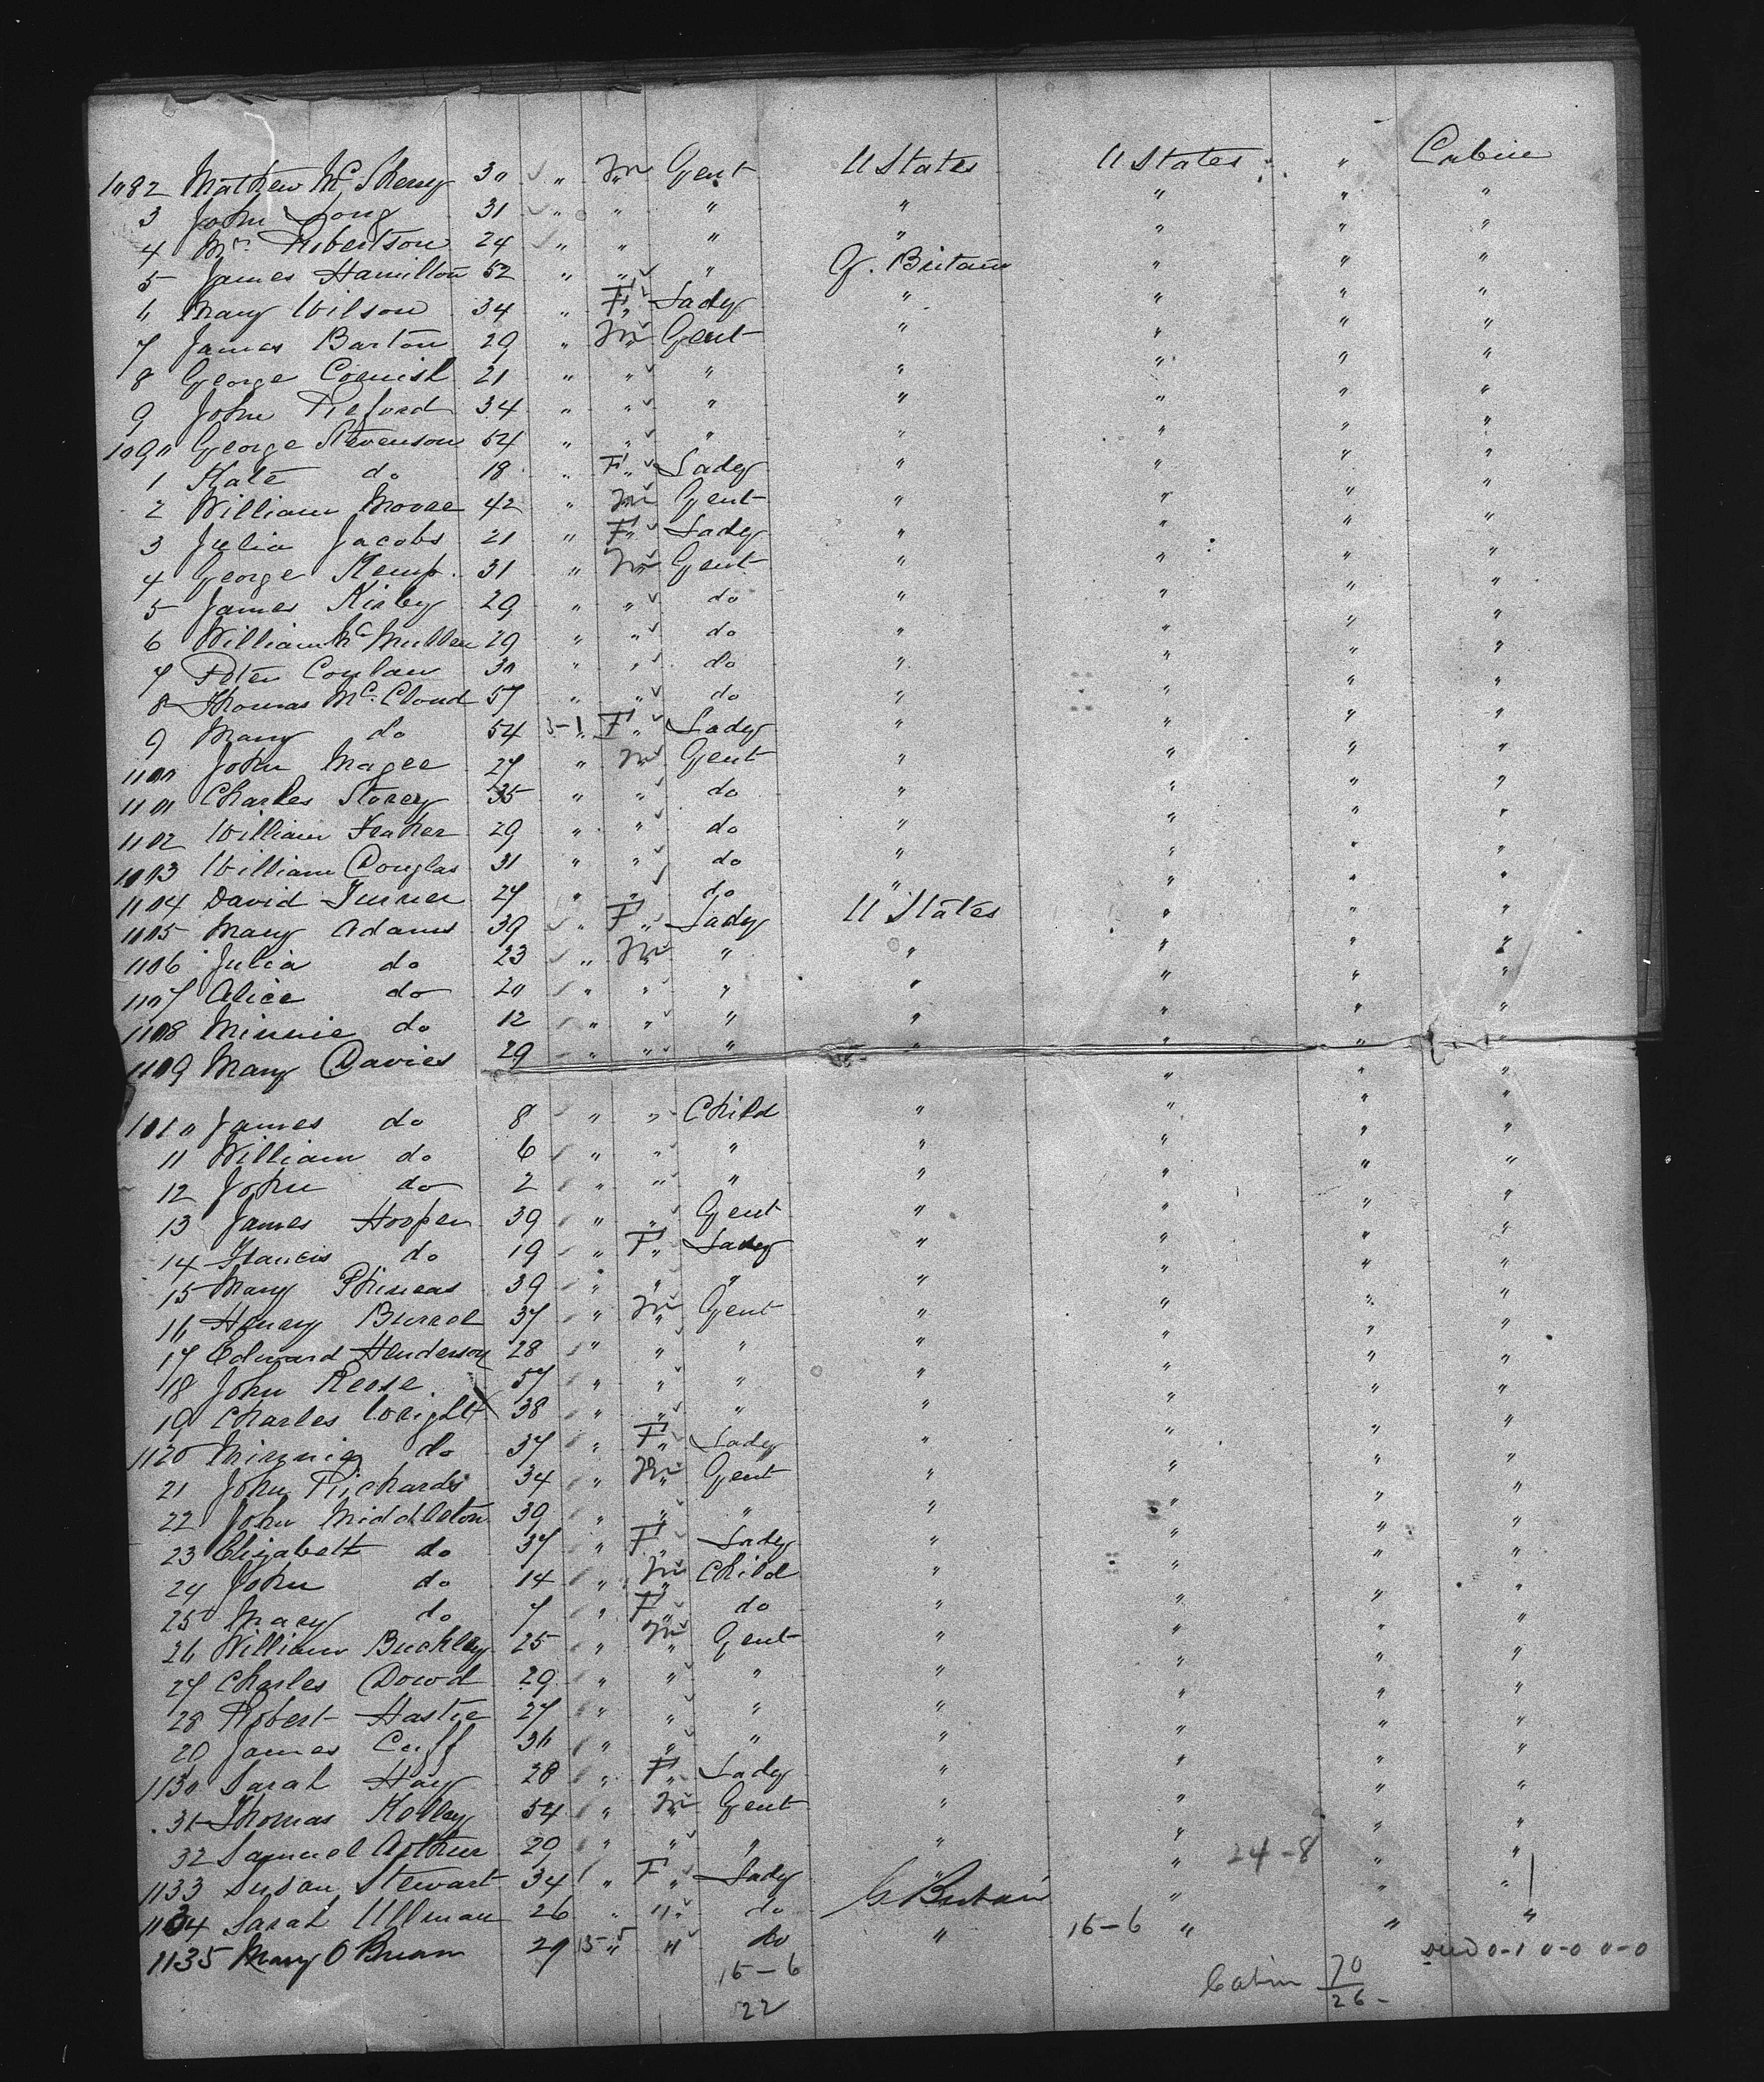 1082 Mathew McSherry 30 " M Gent U States U States " Cabin
3 John Long 31 " " " " " " "
4 Mr. Robertson 24 " " " " " " "
5 James Hamilton 52 " " " G. Britain " " "
6 Mary Wilson 34 " F Lady " " " "
7 James Barton 29 " M Gent " " " "
8 George Cornish 21 " " " " " " "
9 John Reford 34 " " " " " " "
1090 George Stevenson 54 " " " " " " "
1 Kate do 18 " F Lady " " " "
2 William Moore 42 " M Gent " " " "
3 Julia Jacobs 21 " F Lady " " " "
4 George Kemp. 31 " M Gent " " " "
5 James Kirby 29 " " do " " " "
6 William McMullen 29 " " do " " " "
7 Peter Conlan 30 " " do " " " "
8 Thomas McCloud 57 " " do " " " "
9 Mary do 54 5-1 F Lady " " " "
1100 John Magee 27 " M Gent " " " "
1101 Charles Storey 35 " " do " " " "
1102 William Feaher 29 " " do " " " "
1103 William Douglas 31 " " do " " " "
1104 David Turner 27 " " do " " " "
1105 Mary Adams 39 " F Lady U States " " "
1106 Julia do 23 " M " " " " "
1107 Alice do 20 " " " " " " "
1108 Minnie do 12 " " " " " " "
1109 Mary Davies 29 " " " " " " "
1010 James do 8 " " Child " " " "
11 William do 6 " " " " " " "
12 John do 2 " " " " " " "
13 James Hooper 39 " " Gent " " " "
14 Francis do 19 " F Lady " " " "
15 Mary Phineas 39 " " " " " " "
16 Henry Burrel 37 " M Gent " " " "
17 Edward Henderson 28 " " " " " " "
18 John Reese 57 " " " " " " "
19 Charles Wright 38 " " " " " " "
1120 do 37 " F Lady " " " "
21 John Richards 34 " M Gent " " " "
22 John Middleton 39 " " " " " " "
23 Elizabeth do 37 " F Lady " " " "
24 John do 14 " M Child " " " "
25 Mary do 7 " F do " " " "
26 William Buckley 25 " M Gent " " " "
27 Charles Dowd 29 " " " " " " "
28 Robert Hastie 27 " " " " " " "
29 James Cuff 36 " " " " " " "
1130 Sarah Hay 28 " F Lady " " " "
31 Thomas Kolley 54 " M Gent " " " "
32 Samuel Arthur 29 " " " " " " "
1133 Susan Stewart 34 " F Lady " " 24-8 " "
1134 Sarah Ullman 26 " " do G Britain " " "
1135 Mary O Brian 29 15-5 " do " 16-6 " " "
died 0-1 0-0 0-0
16-6
22
Cabin 70
26-